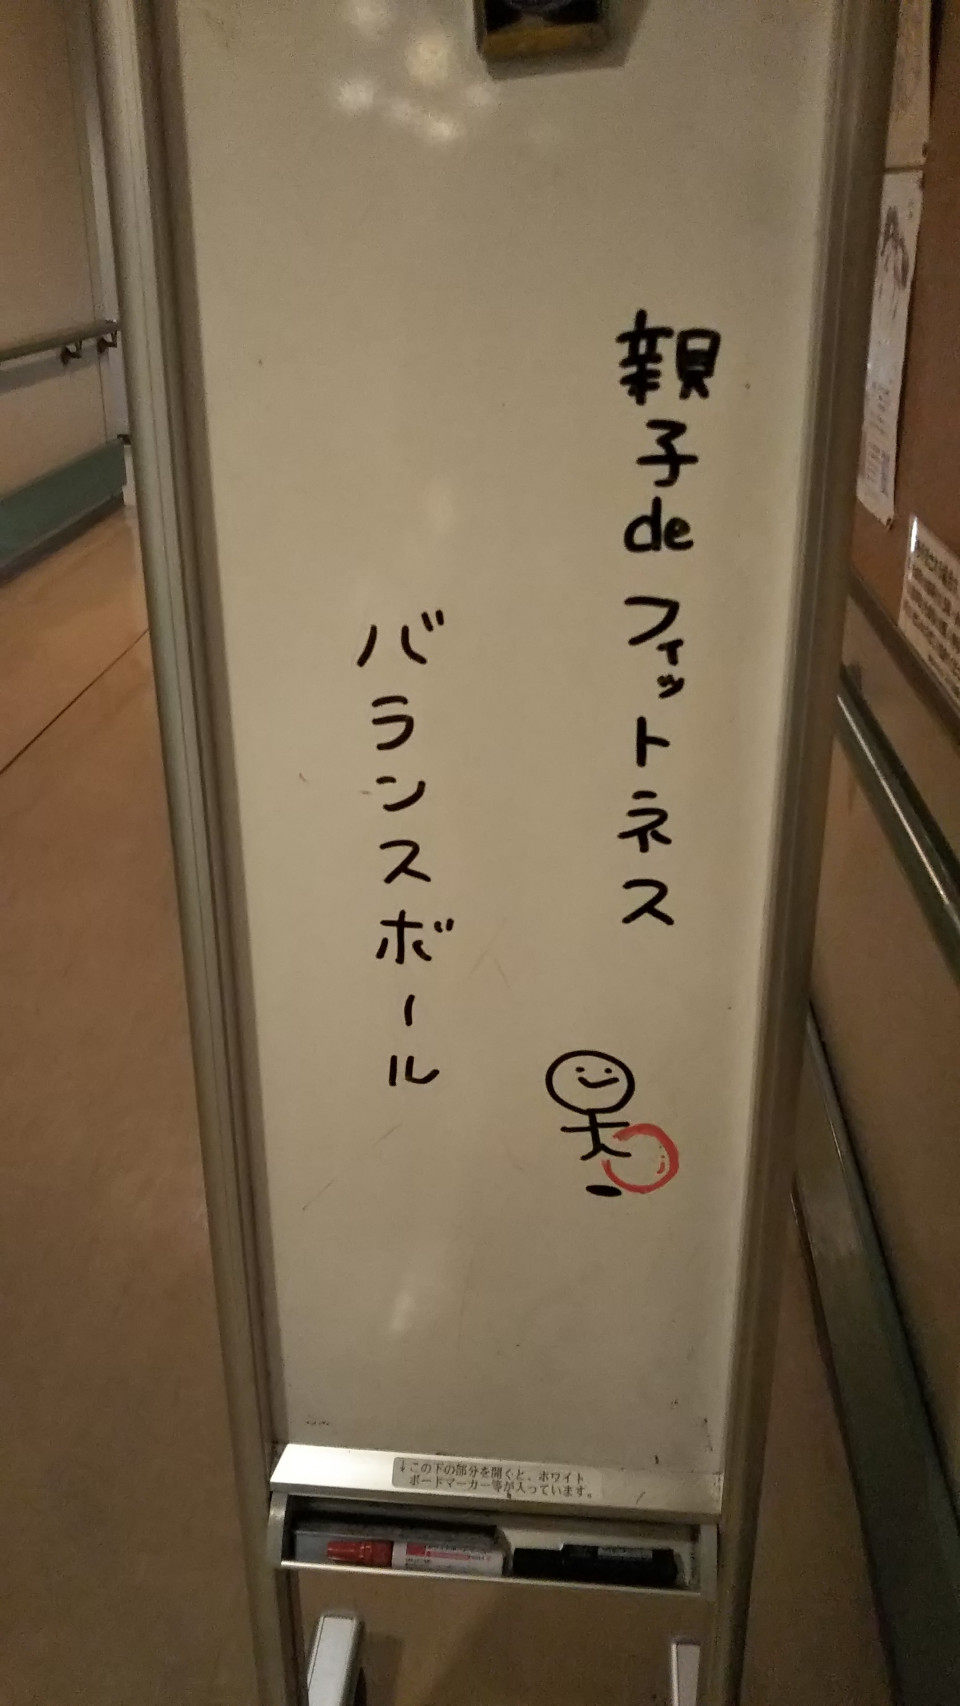 親子deフィットネス
バランスボール
↓この下の部分を開くと、ホワイト
ボードマーカー等が入っています。